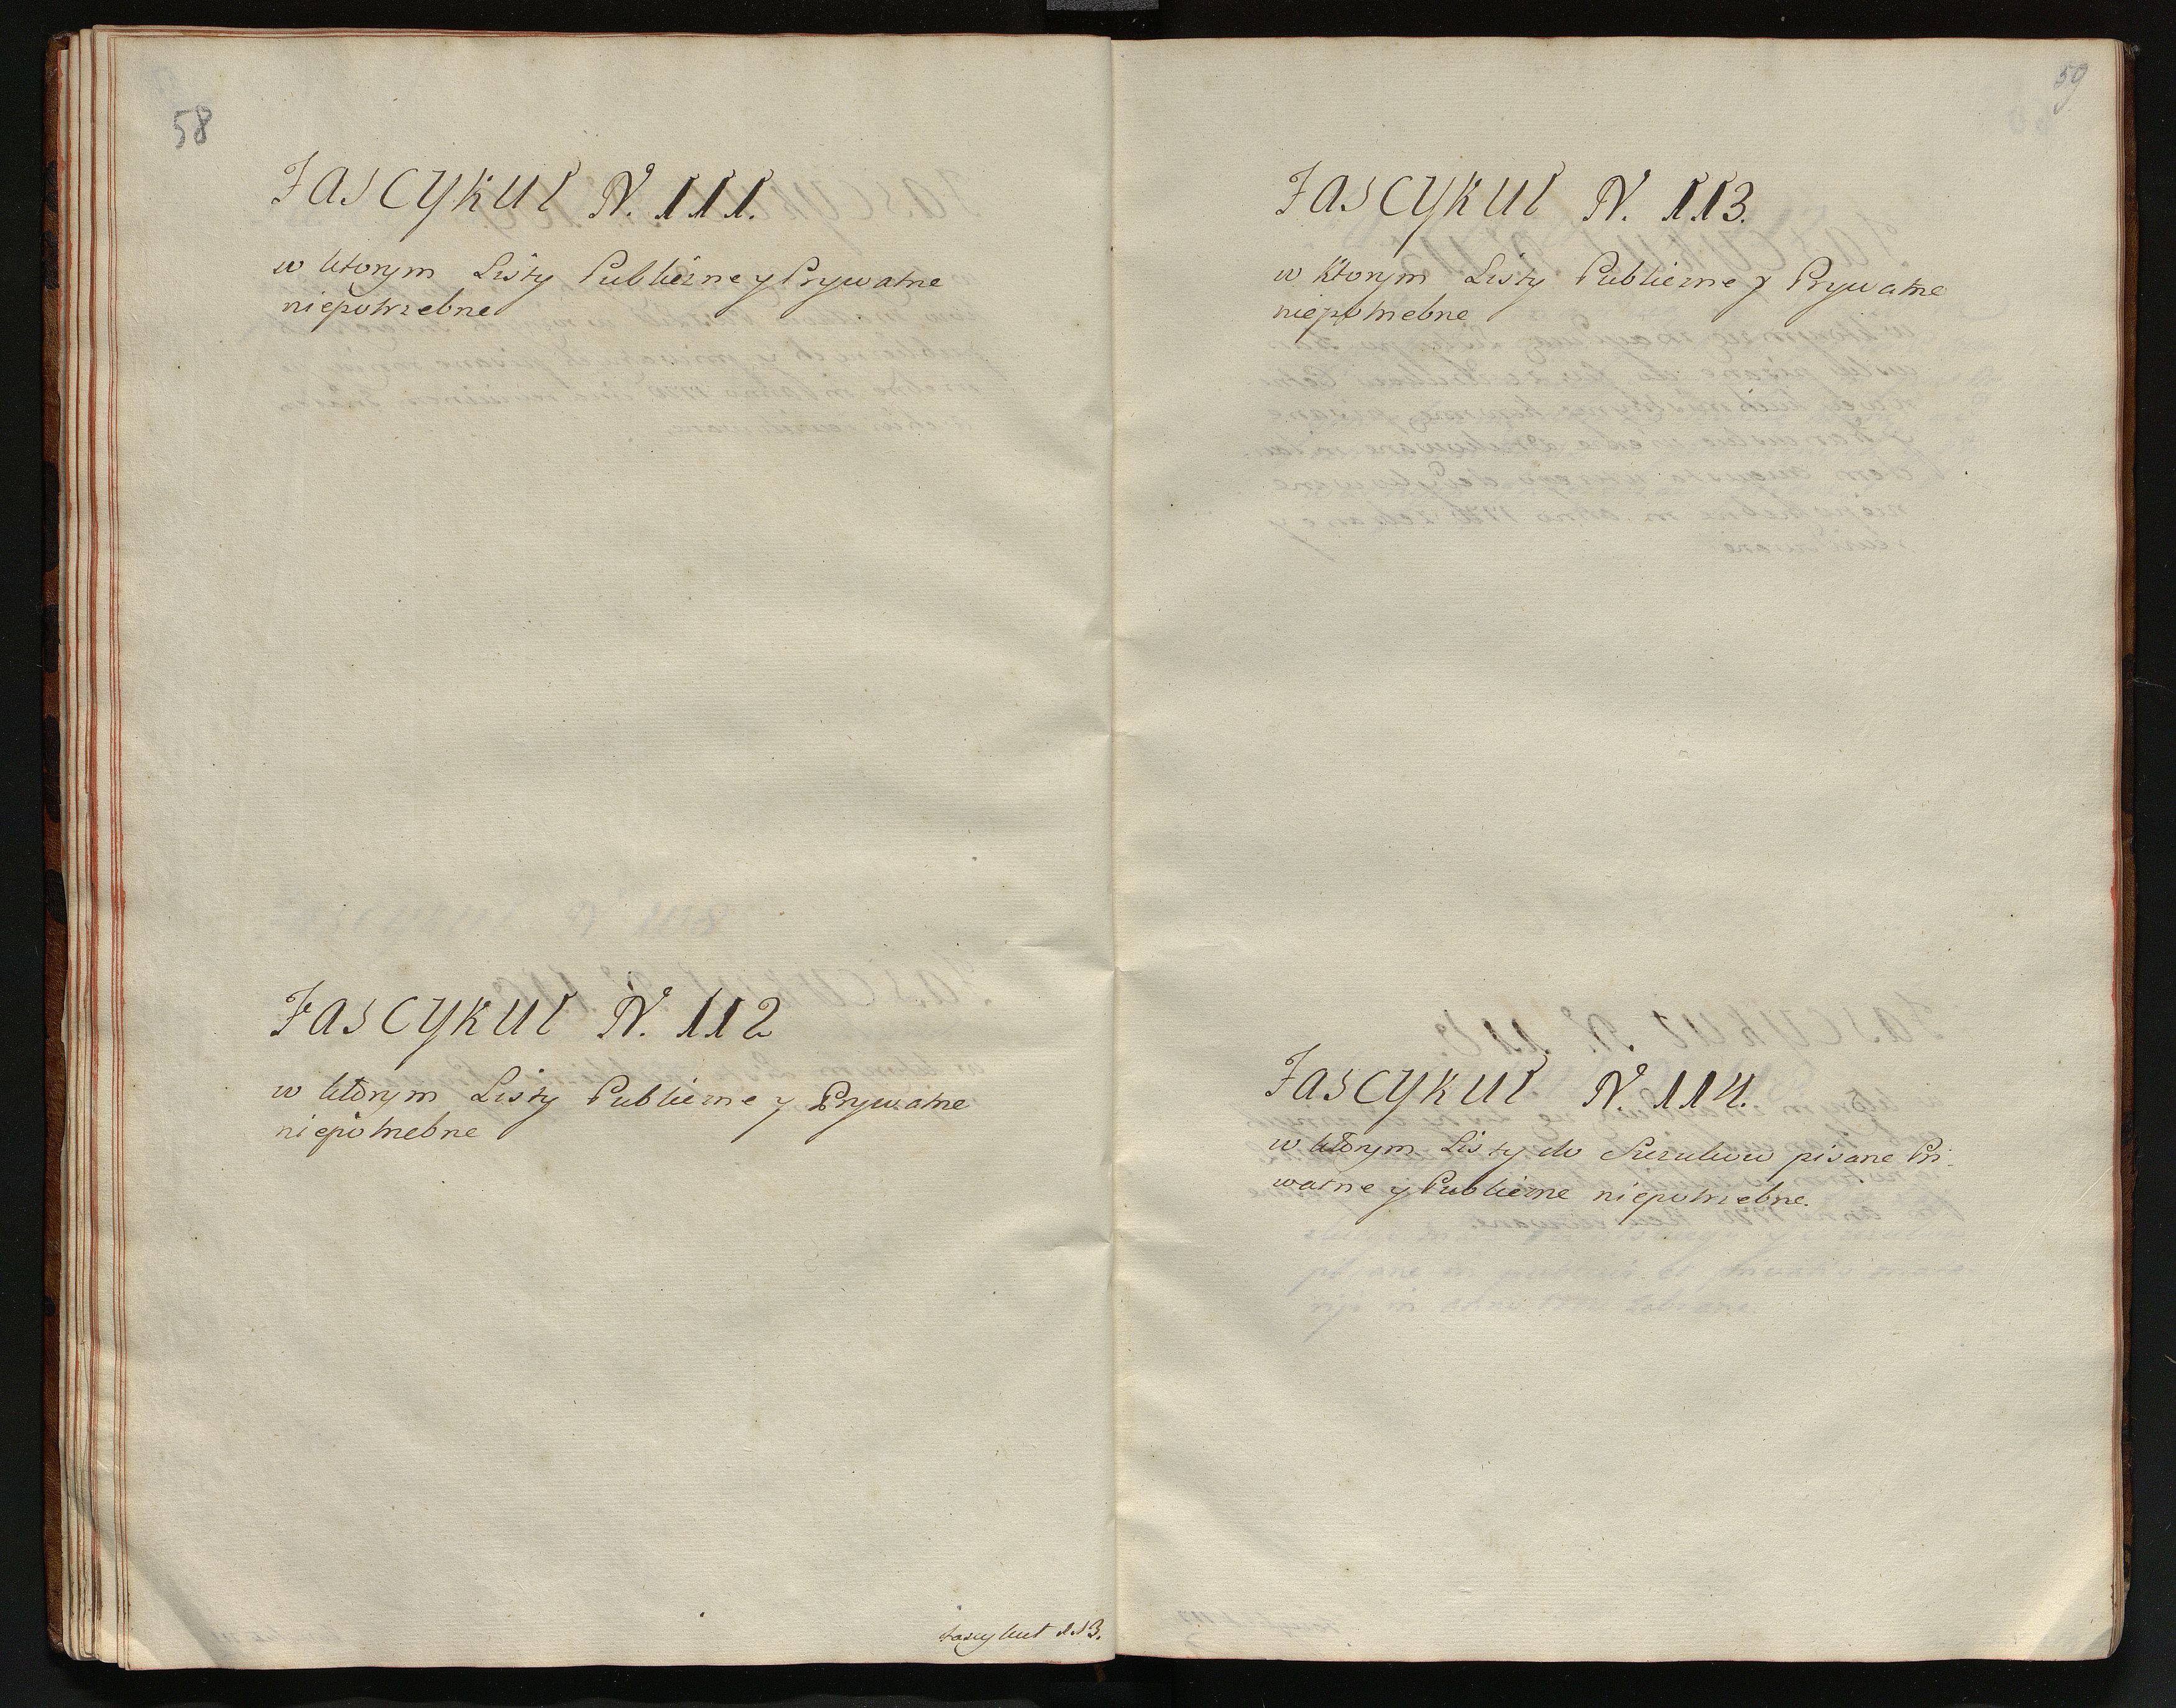 58
Fascykuł N. 111.
w ktorym Listy Publiczne y Prywatne
niepotrzebne
Fascykuł N. 112
w ktorym Listy Publiczne y Prywatne
niepotrzebne
Fascykuł 113.
59
Fascykuł N. 113.
w ktorym Listy Publiczne y Prywatne
niepotrzebne
Fascykuł N. 114.
w ktorym Listy do pisane Pri-
watne y Publiczne niepotrzebne.